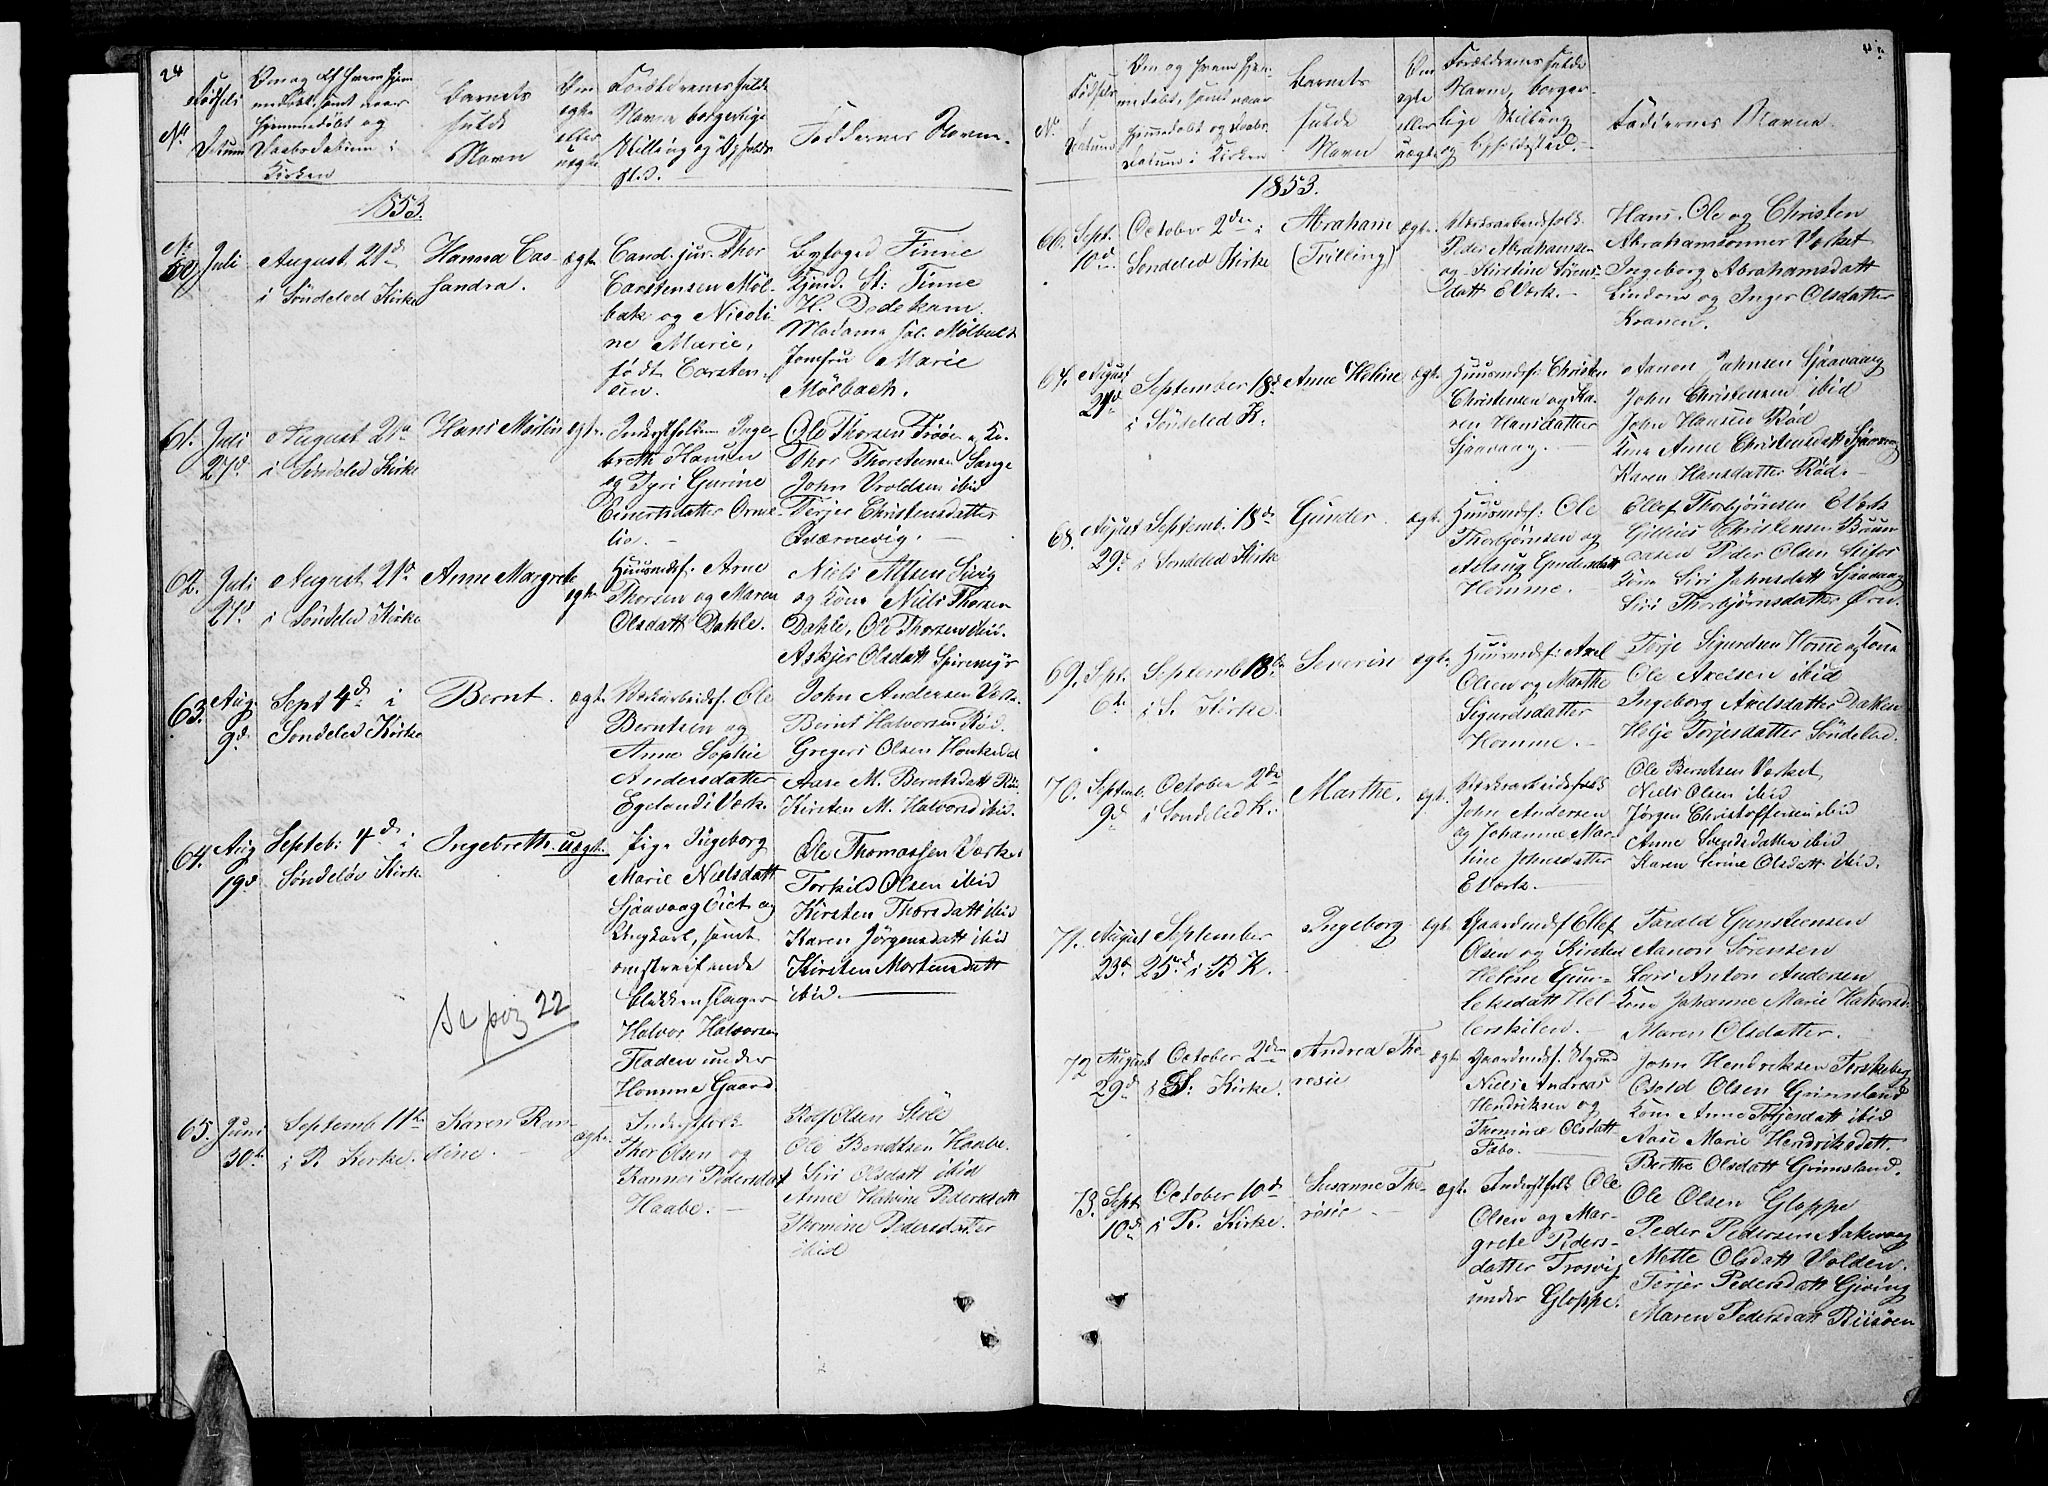 24
Fødsels
Datum
No
Om og af hvem hjem
medøbt, samt naar
hjemmedøbt og
Daabsdatum i
Kirken
Barnets
fulde
Navn
Om
ægte
eller
uægte
Forældrenes fulde
Navn borgerlige
Stilling og Opholds
sted.
Faddernes Navne.
1853.
No
60
Juli
August 21d
i Søndeled Kirke
Hanna Cas-
sandra.
ægte
Cand. jur. Thor
Carstensen Møl-
bak og Nicoli-
ne Marie,
født Carsten-
sen.
Byfoged Finne
Kjmd. St. Finne
H. Dedekam
Madame sal. Mølbach
Jomfru Marie
Mølbach.
61.
Juli
27d
August 21d
i Søndeled Kirke
Hans Martin
ægte
Inderstfolk Inge-
breth Hansen
og Gurine
Einertsdatter Orme-
lio.
Ole Thorsen Frøen
Thor Thorstensen Lange
John Vroldsen ibid
Terjer Christensdatter
Qværnevig.
62.
Juli
21d
August 21d
i Søndeled Kirke
Anne Margrete
ægte
Huusmdf. Arne
Thorsen og Maren
Olsdatt Dahle.
Niels Alfsen Sivig
og Kone Niels Thorsen
Dahle, Ole Thorsen ibid.
Askjer Olsdatt Spiremyr
63.
Aug.
9d
Sept 4d i
Søndeled Kirke
Bernt.
ægte
Værksarbeidsf. Ole
Berntsen og
Anne Sophie
Andersdatter
Egelands Værk.
John Andersen Værk.
Bernt Halvorsen Rød.
Gregers Olsen
Aase M. Berntsdatt
Kirsten M. Halvorsd ibid.
64.
Aug
19d
Septeb: 4d i
Søndeløv Kirke
Ingebreth.
uægte.
Pige Ingeborg
Marie Nielsdatt
Sjaavaag Eiet og
Ungkarl, samt
omstreifende
blikkenslager
Halvor Halvorsen
Fladen under
Homme Gaard
Ole Thomassen Værket
Torkild Olsen ibid
Kirsten Thorsdatt ibid
Karen Jørgensdatt ibid
Kirsten Mortensdatt
ibid.
Se pag 22
65.
Juni
30te
Septemb 11te
i R. Kirke.
Karen Ran-
dine.
ægte
Inderstfolk
Thor Olsen og
Rannei Pedersdat
Haabe.
Rolf Olsen Støle
Ole Bendtsen Haabe.
Siri Olsdatt ibid
Anne Halvine Pedersdatt
Thomine Pedersdatter
ibid
No.
Fødsels
Datum
Om og hvem hjem-
medøbt, samt naar
hjemmedøbt og Daabs-
datum i Kirken
Barnets
fulde
Navn
Om
ægte
eller
uægte
Forældrenes fulde
Navn, borger-
lige Stilling
og Opholdssted.
Faddernes Navne
1853.
66.
Sept.
10de
October 2den i
Søndeled Kirke
Abraham
(Trilling)
ægte
Værksarbeidsfolk
Peder Abrahamsen
og Kirstine Sørens-
datt E Værk.
Hans, Ole og Christen
Abrahamsønner Værket
Ingeborg Abrahamsdatt
Lindom og Inger Olsdatter
Kranen.
67.
August
21d
September 18d
i Søndeled K.
Anne Heline
ægte
Huusmdsf. Christen
Christensen og Ka-
ren Hansdatter
Sjaavaag.
Aanon Jahnsen Sjaavaag
John Christensen ibid
John Hansen Rød
Kone Anne Christensdatt Sjaavaag
Karen Hansdatter Rød.
68.
August
29d
Septemb. 18de
i Søndeled Kirke
Gunder.
ægte.
Huusmdsf. Ole
Thorbjørnsen og
Aslaug Gundersdatt
Homme.
Ellef Thorbjørnsen E Værk
Christensen Bruun
aasen Peder Olsen
Kone Siri Jahnsdatt Sjaavaag
Siri Thorbjørnsdatter Ørn.
69.
Sept.
6te
Septemb 18de
i S. Kirke.
Severin
ægte
Huusmdsf. Axel
Olsen og Marthe
Sigurdsdatter
Homme.
Terje Sigurdsen Home og Kone
Ole Axelsen ibid
Ingeborg Axelsdatter Dalen
Helje Torjesdatter Søndeled.
70.
Septemb.
9d
October 2de
i Søndeled K.
Marthe.
ægte.
Værksarbeidsfolk
John Andersen
og Johanne Mar-
tine Johnsdatter
E Værk.
Ole Berntsen Værket
Niels Olsen ibid
Jørgen Christoffersen ibid
Anne Svendsdatter ibid
Karen Serine Olsdatt ibid.
71.
August
23d
September
25d i R. K.
Ingeborg
ægte
Gaardmdsf Ellef
Olsen og Kirsten
Helene Gun-
leksdatt Hel-
lerskilen.
Tarald Gunsteensen
Aanon Sørensen
Lars Anton Andersen
Kone Johanne Marie Halvorsd
Maren Olsdatter.
72
August
29d
October 2den
i S. Kirke.
Andrea The-
resie
ægte
Gaardmdsf.
Niels Andreas
Hendriksen og
Thomine Olsdatt
Fæbo.
John Hendriksen Torskeberg
Osold Olsen Grimsland
Kone Anne Torjesdatt ibid
Aase Marie Hendriksdatt
Berthe Olsdatt Grimsland.
73.
Sept.
10d
October 10d
i R. Kirke.
Susanne The-
resie.
ægte
Inderstfolk Ole
Olsen og Mar-
grete Peders-
datter Trosvig
under Gloppe.
Ole Olsen Gloppe
Peder Pedersen Aakvaag
Mette Olsdatt Volden.
Terjer Pedersdatt Gjeving
Maren Pedersdatt Riisøen